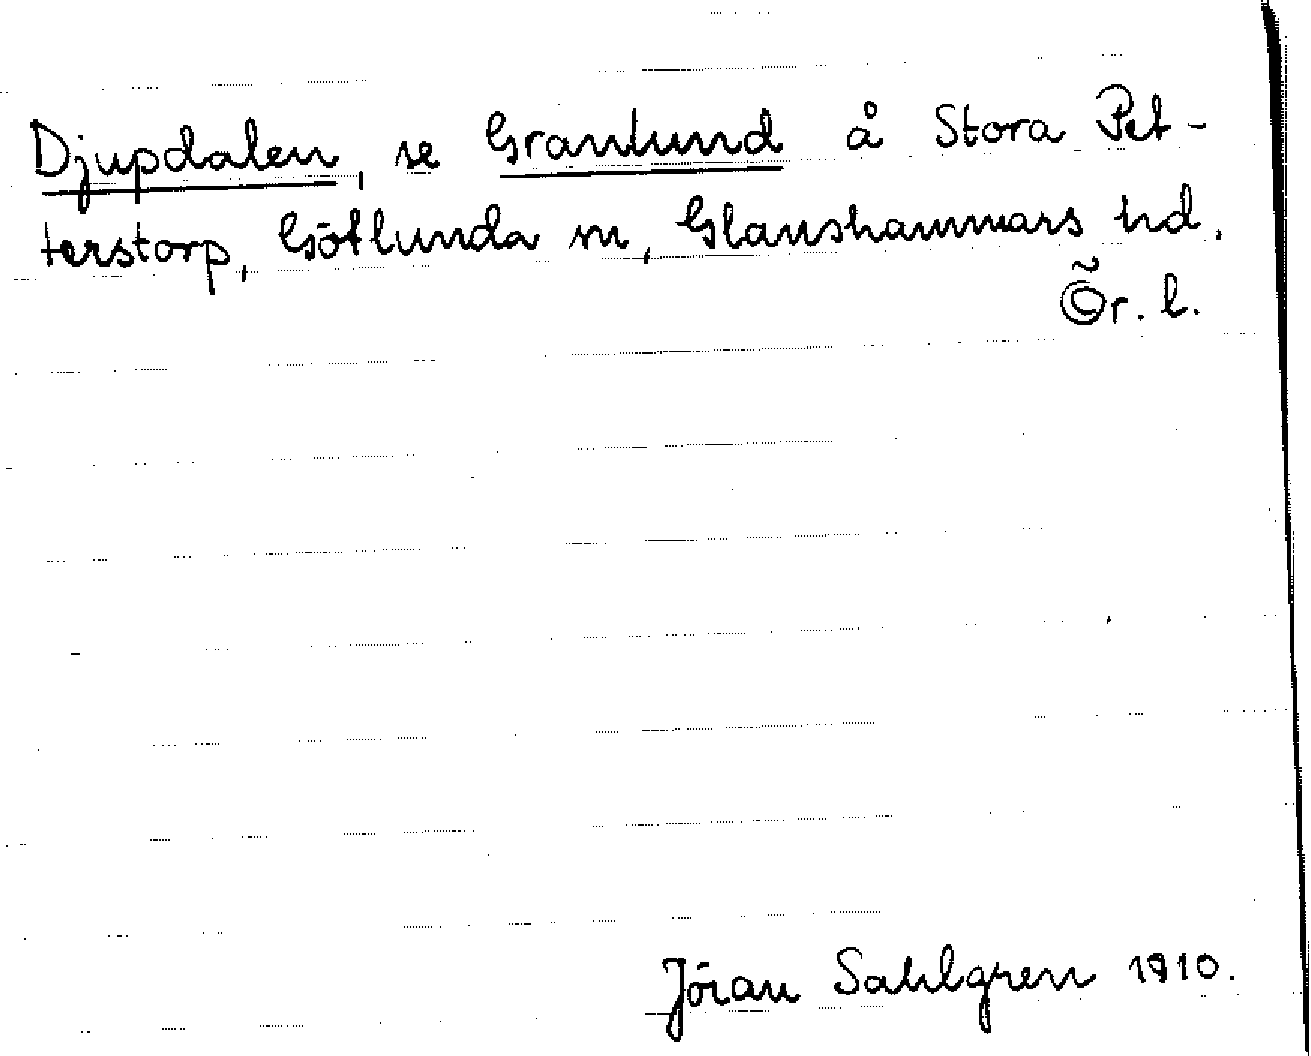 Djupdalen, se Granlund å Stora Pet-
terstorp, Götlunda sn, Glanshammars hd.
Ör. l.
Jöran Sahlgren 1910.